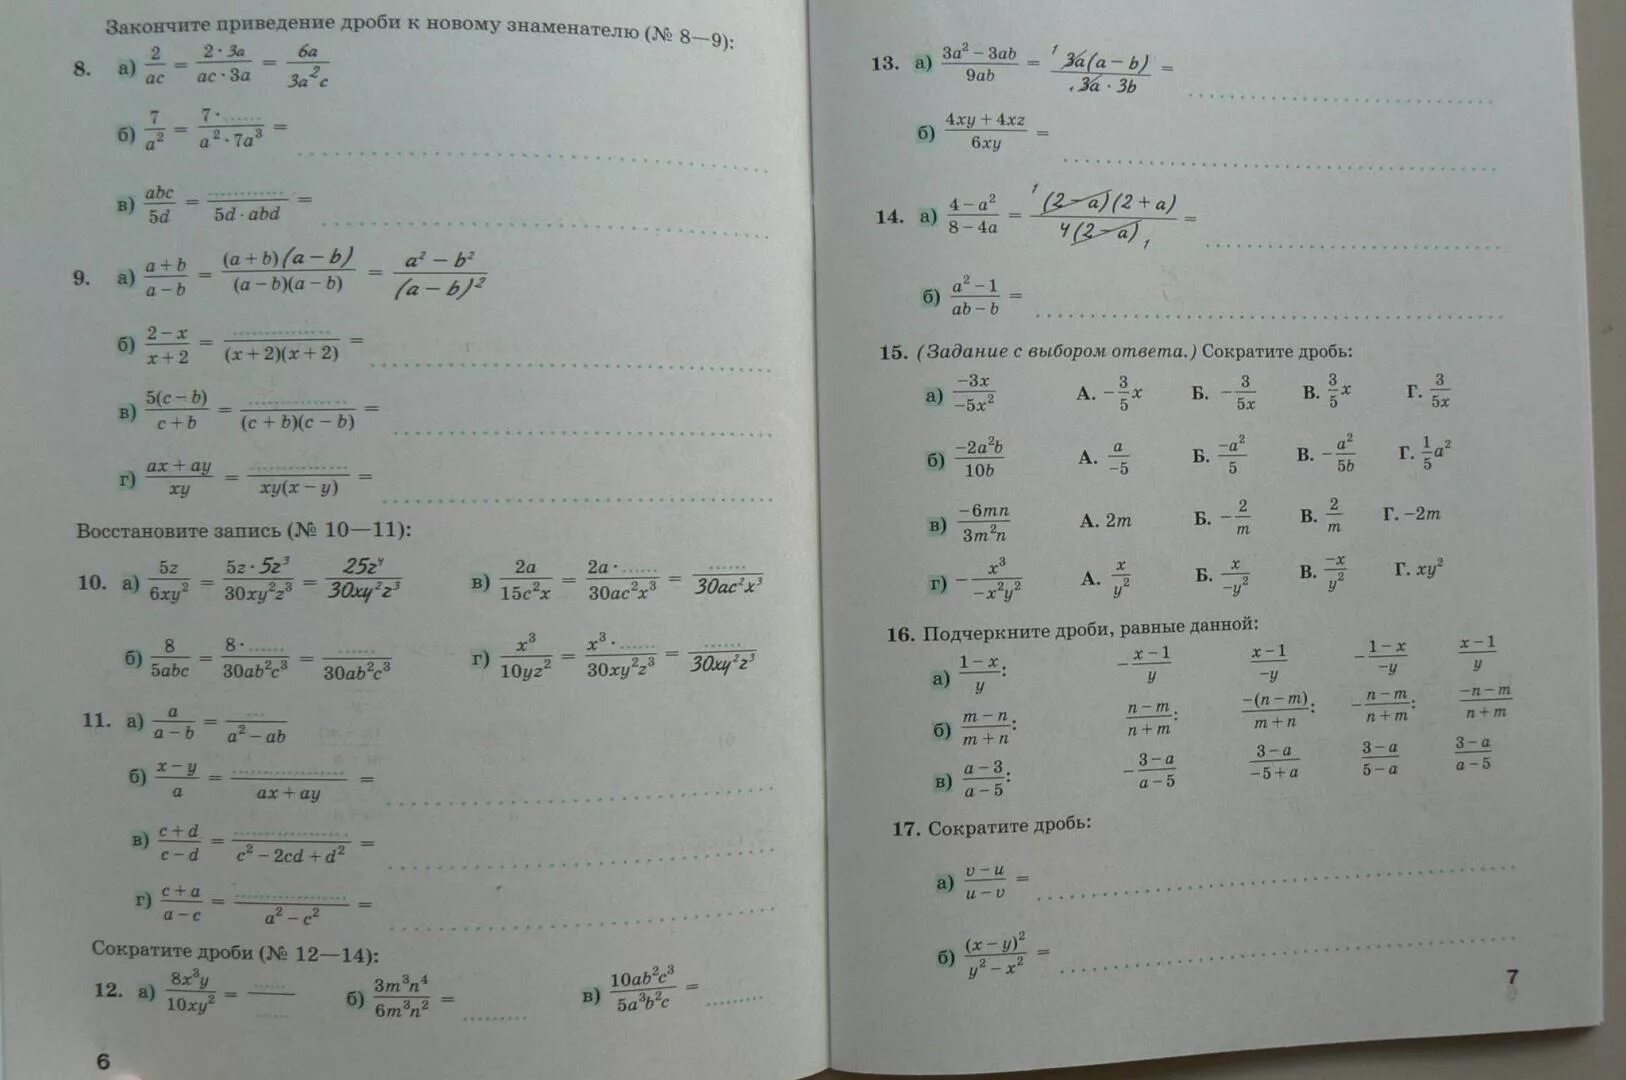 Закончите приведение дроби к новому знаменателю (№ 8—9):
8. а) 2/ac = 2 · 3a/ac · 3a = 6a/3a²c
б) 7/a² = 7 · ....../a² · 7a³ =
в) abc/5d = ............/5d · abd =
9. а) a + b/a − b = (a + b)(a − b)/(a − b)(a − b) = a² − b²/(a − b)²
б) 2 − x/x + 2 = ............/(x + 2)(x + 2) =
в) 5(c − b)/c + b = ............/(c + b)(c − b) =
г) ax + ay/xy = ............/xy(x − y) =
Восстановите запись (№ 10—11):
10. а) 5z/6xy² = 5z · 5z³/30xy²z³ = 25z⁴/30xy²z³
в) 2a/15c²x = 2a · ....../30ac²x³ = ....../30ac²x³
б) 8/5abc = 8 · ....../30ab²c³ = ....../30ab²c³
г) x³/10yz² = x³ · ....../30xy²z³ = ....../30xy²z³
11. а) a/a − b = .../a² − ab
б) x − y/a = ............/ax + ay =
в) c + d/c − d = ............/c² − 2cd + d² =
г) c + a/a − c = ............/a² − c² =
Сократите дроби (№ 12—14):
12. а) 8x³y/10xy² = ....../......
б) 3m³n⁴/6m³n² = .........
в) 10ab²c³/5a³b²c = .........
6
13. а) 3a² − 3ab/9ab = ¹ 3a(a − b)/3a · 3b =
б) 4xy + 4xz/6xy =
14. а) 4 − a²/8 − 4a = ¹ (2 − a)(2 + a)/4(2 − a) ₁ =
б) a² − 1/ab − b =
15. (Задание с выбором ответа.) Сократите дробь:
а) −3x/−5x² А. −3/5 x Б. −3/5x В. 3/5 x Г. 3/5x
б) −2a²b/10b А. a/−5 Б. −a²/5 В. −a²/5b Г. 1/5 a²
в) −6mn/3m²n А. 2m Б. −2/m В. 2/m Г. −2m
г) −x³/−x²y² А. x/y² Б. x/−y² В. −x/y² Г. xy²
16. Подчеркните дроби, равные данной:
а) 1 − x/y: −x − 1/y x − 1/−y −1 − x/−y x − 1/y
б) m − n/m + n: n − m/n + m: −(n − m)/m + n: −n − m/n + m: −n − m/n + m
в) a − 3/a − 5: −3 − a/a − 5 3 − a/−5 + a 3 − a/5 − a 3 − a/a − 5
17. Сократите дробь:
а) v − u/u − v =
б) (x − y)²/y² − x² =
7